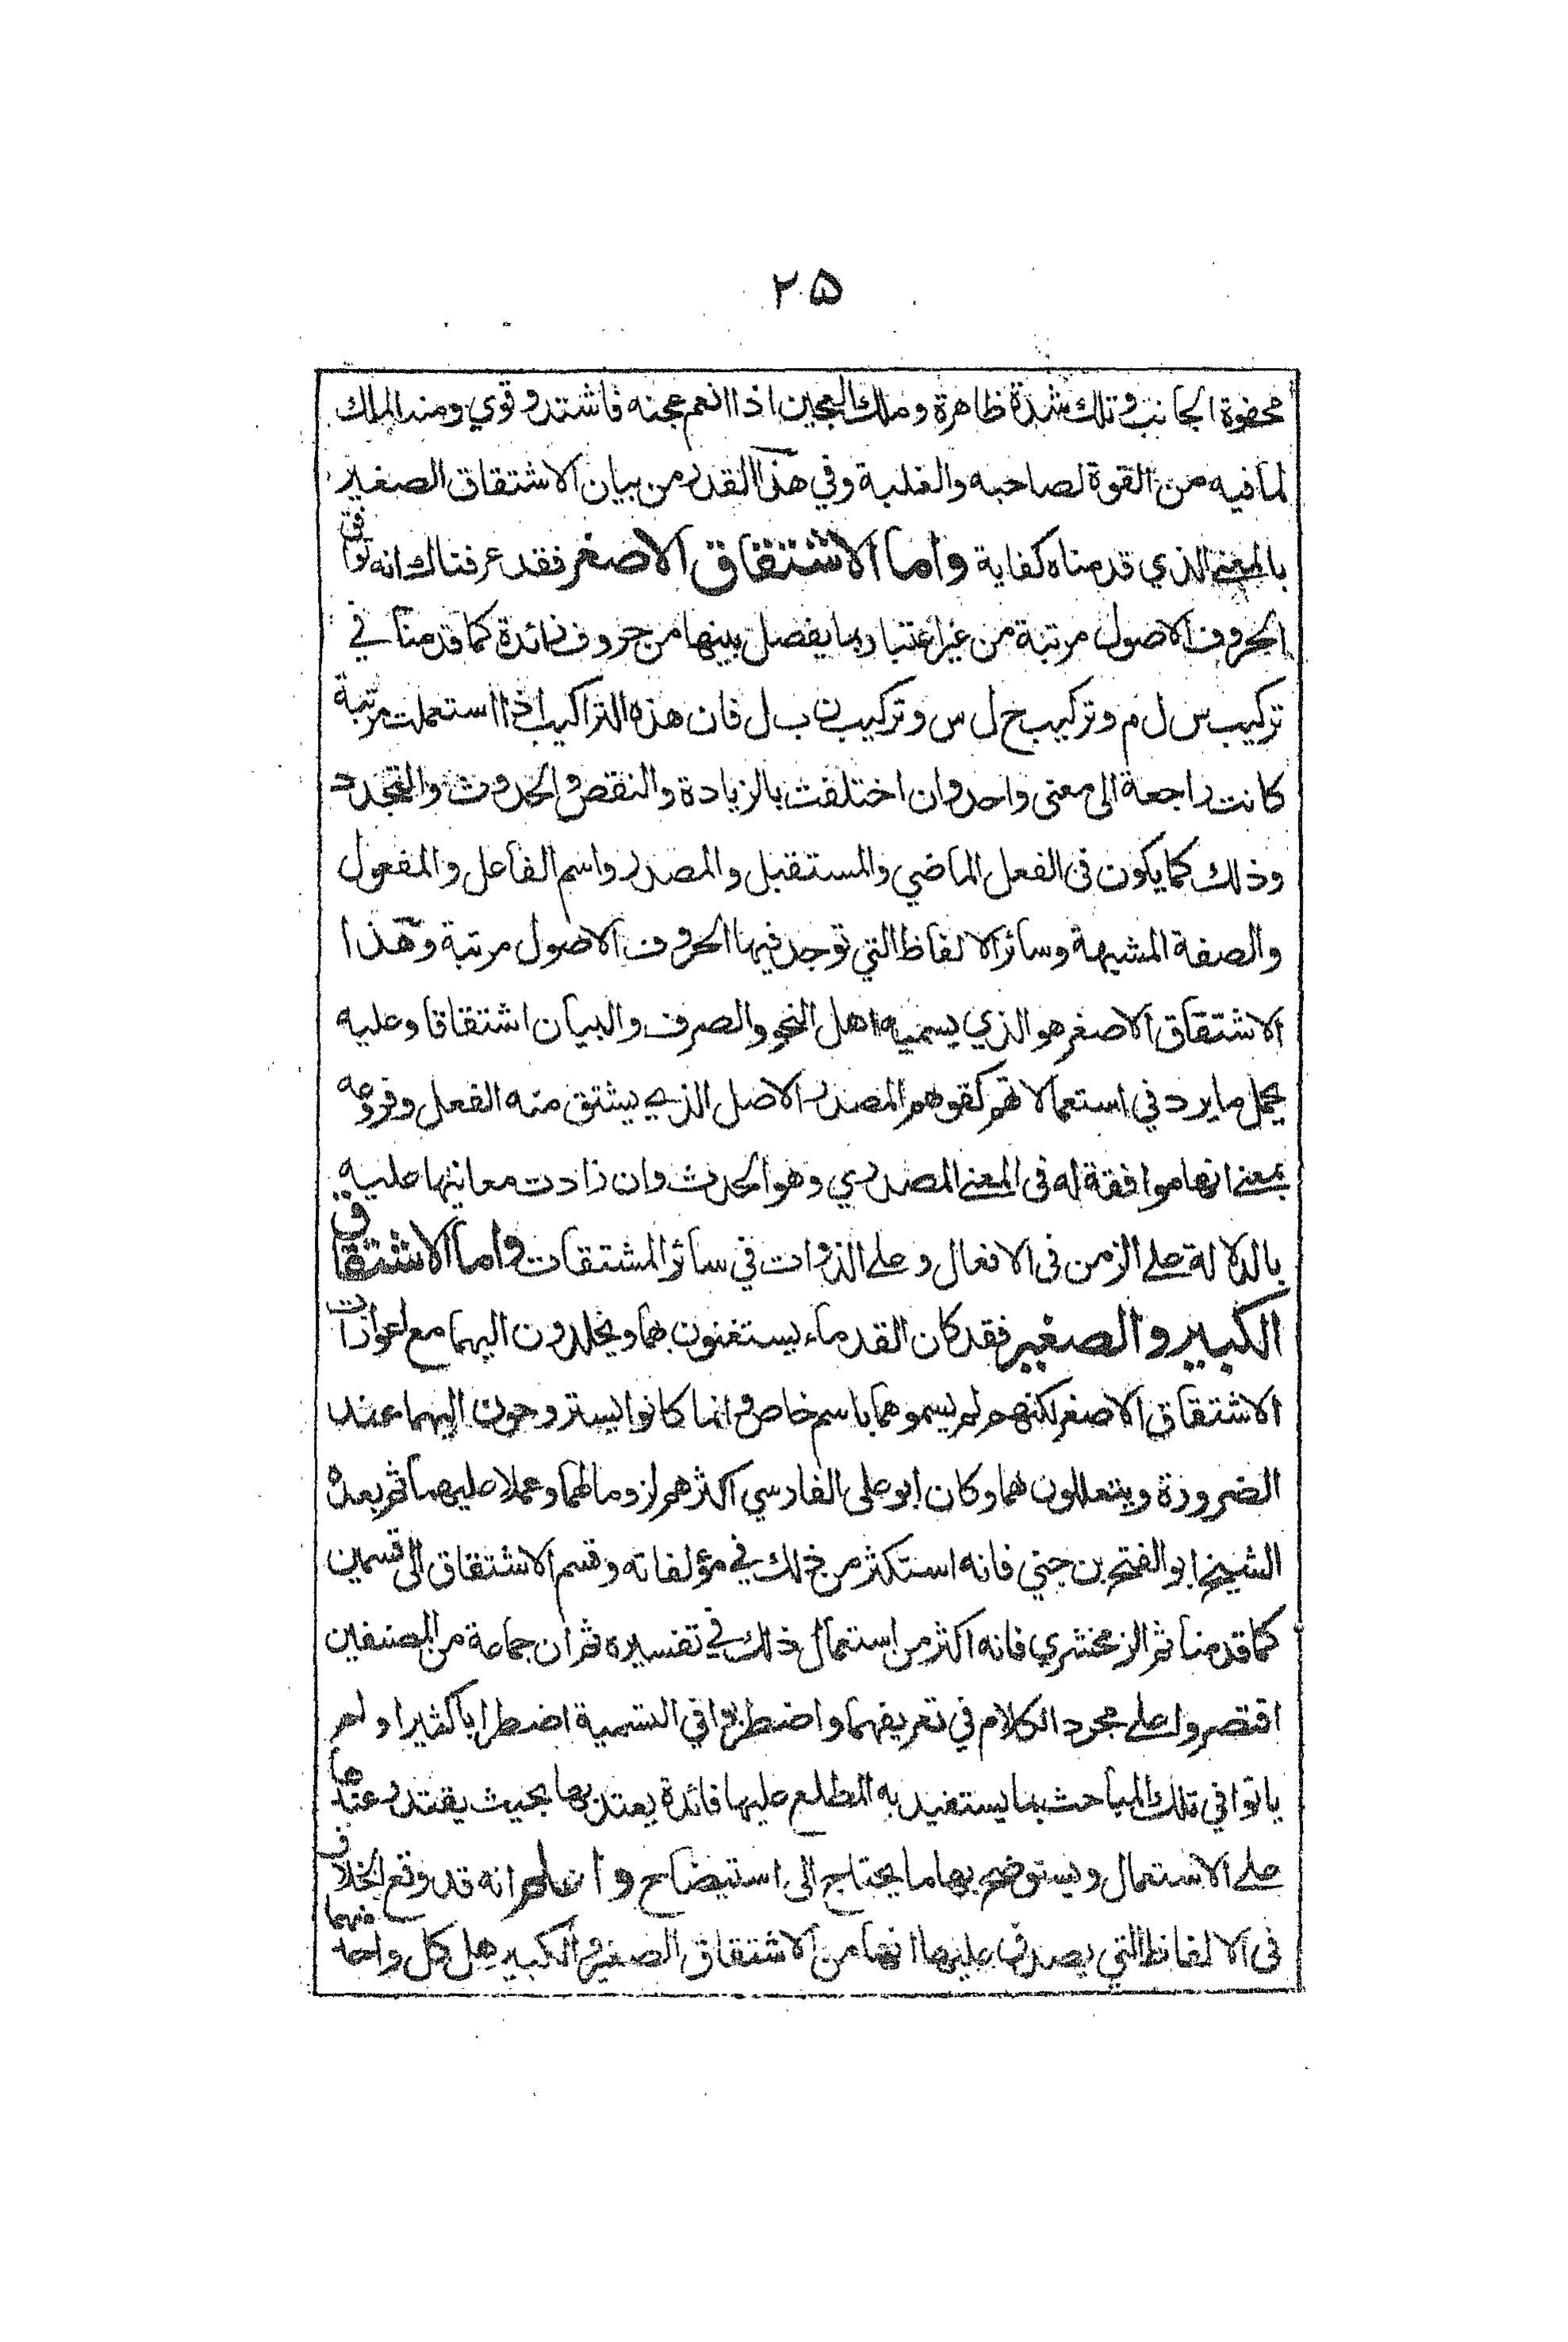 ٢٥
محفوة الجانب وتلك شدة ظاهرة وملك العجين اذا انعم عجنه فاشتد وقوي ومنه الملك
لما فيه من القوة لصاحبه والغلبة وفي هذا القدر من بيان الاشتقاق الصغير
بالمعنى الذي قدمناه كفاية واما الاشتقاق الاصغر فقد عرفناك انه توافق
الحروف الاصول مرتبة من غير اعتبار بما يفصل بينها من حروف زائدة كما قدمنا في
تركيب س ل م وتركيب ج ل س وتركيب ن ب ل فان هذه التراكيب اذا استعملت مرتبة
كانت راجعة الى معنى واحد وان اختلفت بالزيادة والنقص والحدوث والتجدد
وذلك كما يكون في الفعل الماضي والمستقبل والمصدر واسم الفاعل والمفعول
والصفة المشبهة وسائر الالفاظ التي توجد فيها الحروف الاصول مرتبة وهذا
الاشتقاق الاصغر هو الذي يسميه اهل النحو والصرف والبيان اشتقاقا وعليه
يحمل ما يرد في استعمالاتهم كقولهم المصدر الاصل الذي يشتق منه الفعل وفروعه
بمعنى انها موافقة له في المعنى المصدري وهو الحدث وان زادت معانيها عليه
بالدلالة على الزمن في الافعال وعلى الذوات في سائر المشتقات واما الاشتقاق
الكبير والصغير فقد كان القدماء يستغنون بهما ويخلدون اليهما مع اعوازات
الاشتقاق الاصغر لكنهم لم يسموهما باسم خاص وانما كانوا يستروحون اليهما عند
الضرورة ويتعللون بهما وكان ابو على الفارسي اكثرهم لزوما لهما وعملا عليهما ثم بعده
الشيخ ابو الفتح بن جني فانه استكثر من ذلك في مؤلفاته وقسم الاشتقاق الى قسمين
كما قدمنا ثم الزمخشري فانه اكثر من استعمال ذلك في تفسيره ثم ان جماعة من المصنفين
اقتصروا على مجرد الكلام في تعريفهما واضطربوا في التسمية اضطرابا كثيرا ولم
ياتوا في تلك المباحث بما يستفيد به المطلع عليها فائدة يعتد بها بحيث يقتدر عندها
على الاستعمال ويستوضح بها ما يحتاج الى استيضاح واعلم انه قد وقع الخلاف
في الالفاظ التي يصدق عليها انها من الاشتقاق الصغير والكبير هل كل واحد منهما